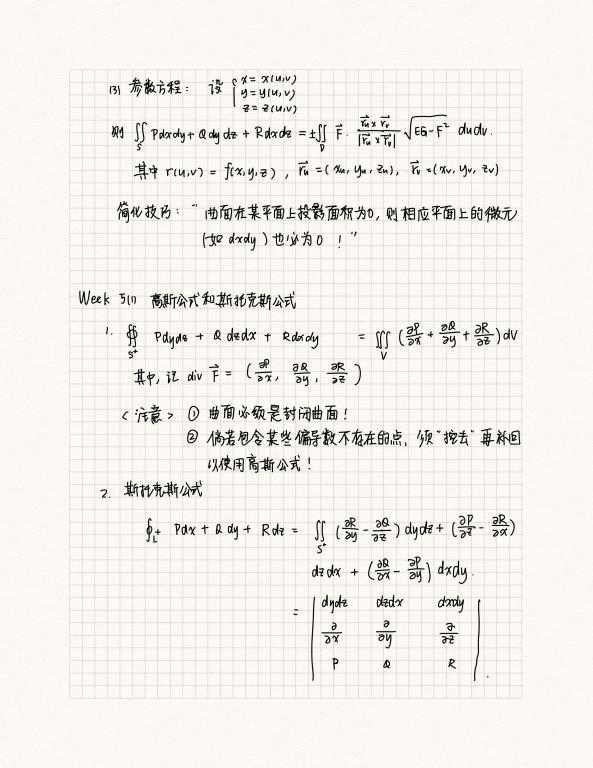 (3) 参数方程： 设 { x = x(u,v)
y = y(u,v)
z = z(u,v)
则 ∬_S Pdxdy + Qdydz + Rdxdz = ±∬_D F⃗ · (r⃗u × r⃗v)/|r⃗u × r⃗v| √(EG-F²) dudv.
其中 r(u,v) = f(x,y,z) , r⃗u = (xu, yu, zu), r⃗v = (xv, yv, zv)
简化技巧： “曲面在某平面上投影面积为0, 则相应平面上的微元
(如 dxdy ) 也必为 0 ！”
Week 5(1) 高斯公式和斯托克斯公式
1. ∯_S⁺ Pdydz + Q dzdx + Rdxdy = ∭_V (∂P/∂x + ∂Q/∂y + ∂R/∂z) dV
其中, 记 div F⃗ = (∂P/∂x, ∂Q/∂y, ∂R/∂z)
<注意> ① 曲面必须是封闭曲面！
② 倘若包含某些偏导数不存在的点, 须“挖去”再补回
以使用高斯公式！
2. 斯托克斯公式
∮_L⁺ Pdx + Q dy + R dz = ∬_S⁺ (∂R/∂y - ∂Q/∂z) dydz + (∂P/∂z - ∂R/∂x)
dzdx + (∂Q/∂x - ∂P/∂y) dxdy.
= | dydz dzdx dxdy |
| ∂/∂x ∂/∂y ∂/∂z |
| P Q R | .